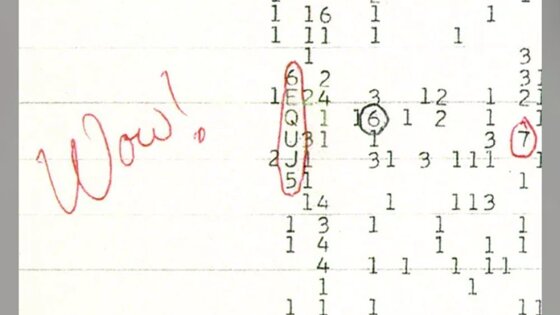 1 16 1 1
1 11 1 1
1 3
6 2 3
1 E24 3 12 1 2
Q 1 1 6 1 2 1
Wow!
U31 1 3 7
2 J1 31 3 111
51 1
14 1 113
1 3 1 1 1
1 4 1 1 1
4 1 1 1 11
1 1
1 1 1 11